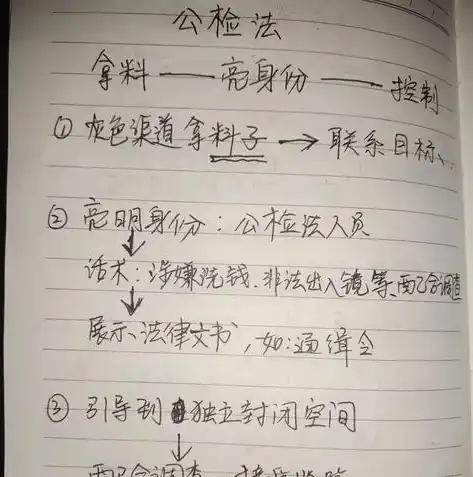 公检法
拿料——亮身份——控制
① 灰色渠道拿料子 → 联系目标、
② 亮明身份：公检法人员
↓
话术：涉嫌洗钱、非法出入镜等、配合调查
↓
展示法律文书，如：通缉令
③ 引导到独立封闭空间
↓
配合调查